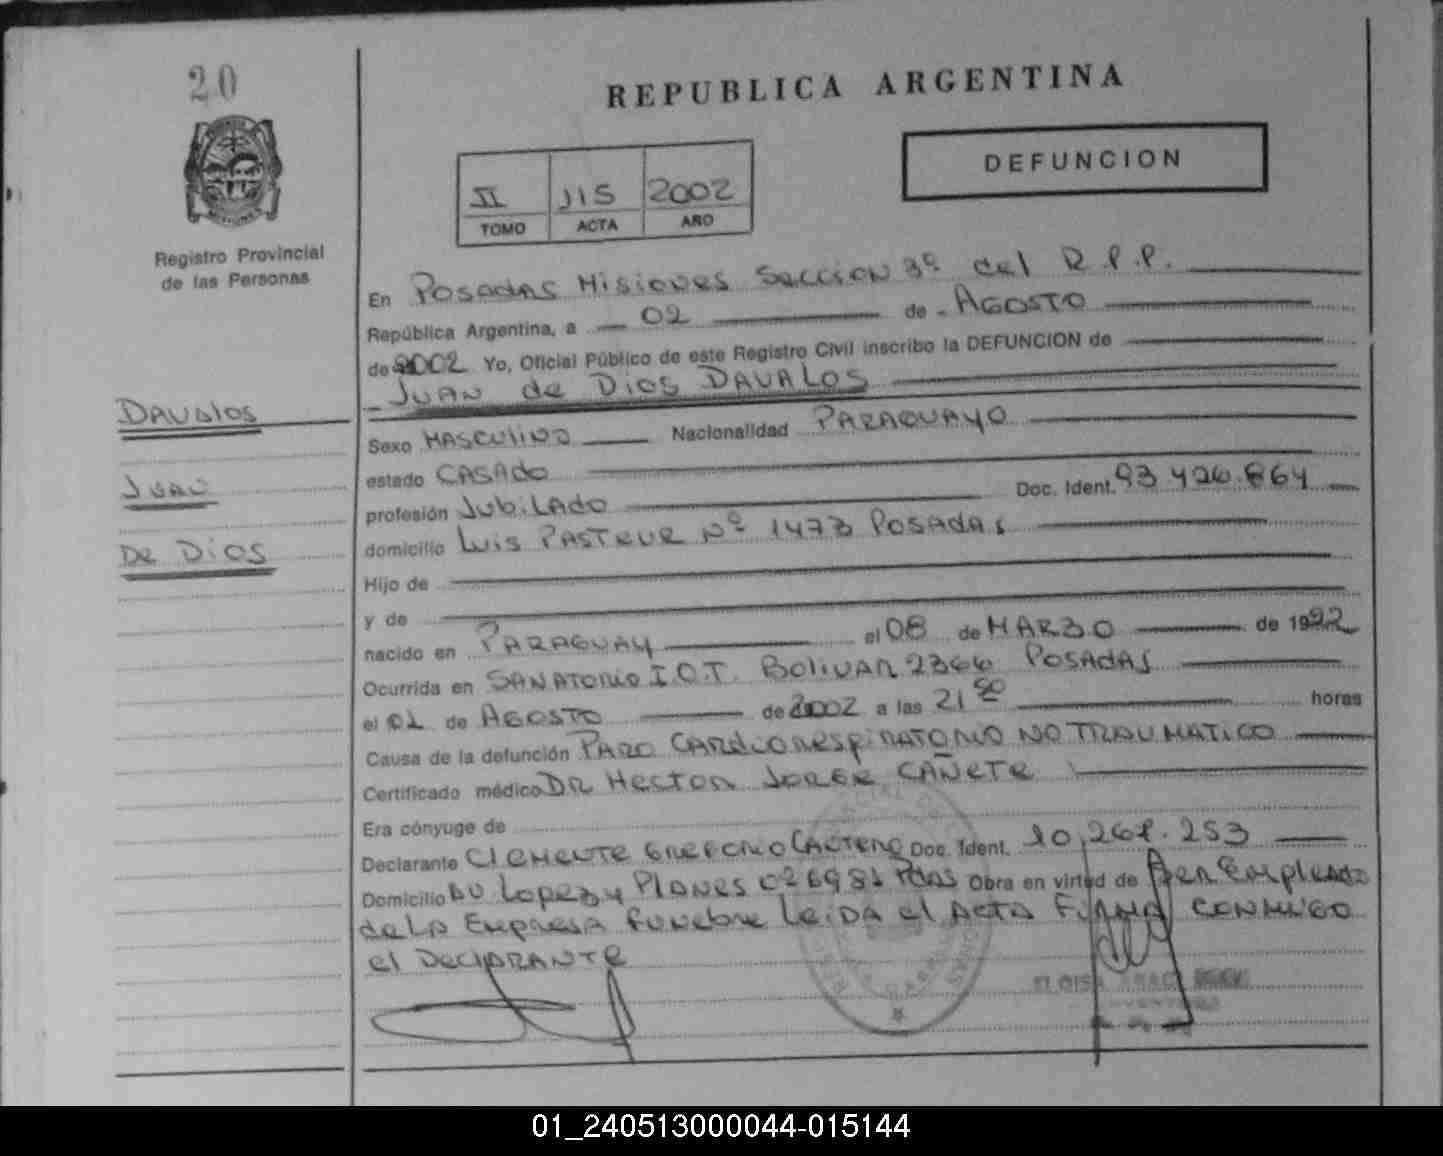 20
REPUBLICA ARGENTINA
DEFUNCION
II JIS 2002
TOMO ACTA AÑO
Registro Provincial
de las Personas
En Posadas Misiones Seccion 3º del R.P.P.
República Argentina, a 02 de AGOSTO
de 2002 Yo, Oficial Público de este Registro Civil inscribo la DEFUNCION de
Juan de Dios DAVALOS
DAVALOS
Juan
De Dios
Sexo MASCULINO Nacionalidad PARAGUAYO
estado CASADO
profesión Jubilado Doc. Ident. 93 426.864
domicilio Luis PASTEUR Nº 1473 POSADAS
Hijo de
y de
nacido en PARAGUAY el 08 de MARZO de 19
Ocurrida en SANATORIO I.O.T. BOLIVAR 2366 POSADAS
el 01 de AGOSTO de 2002 a las 21 50 horas
Causa de la defunción PARO CARDIORESPIRATORIO NO TRAUMATICO
Certificado médico DR HECTOR JORGE CAÑETE
Era cónyuge de
Declarante CLEMENTE GREGORIO Doc. Ident. 10.268.253
Domicilio AV LOPEZ y PLANES Pdas Obra en virtud de ser Empleado
de la Empresa Funebre Leida el Acta Firma conmigo
el DECLARANTE
01_240513000044-015144